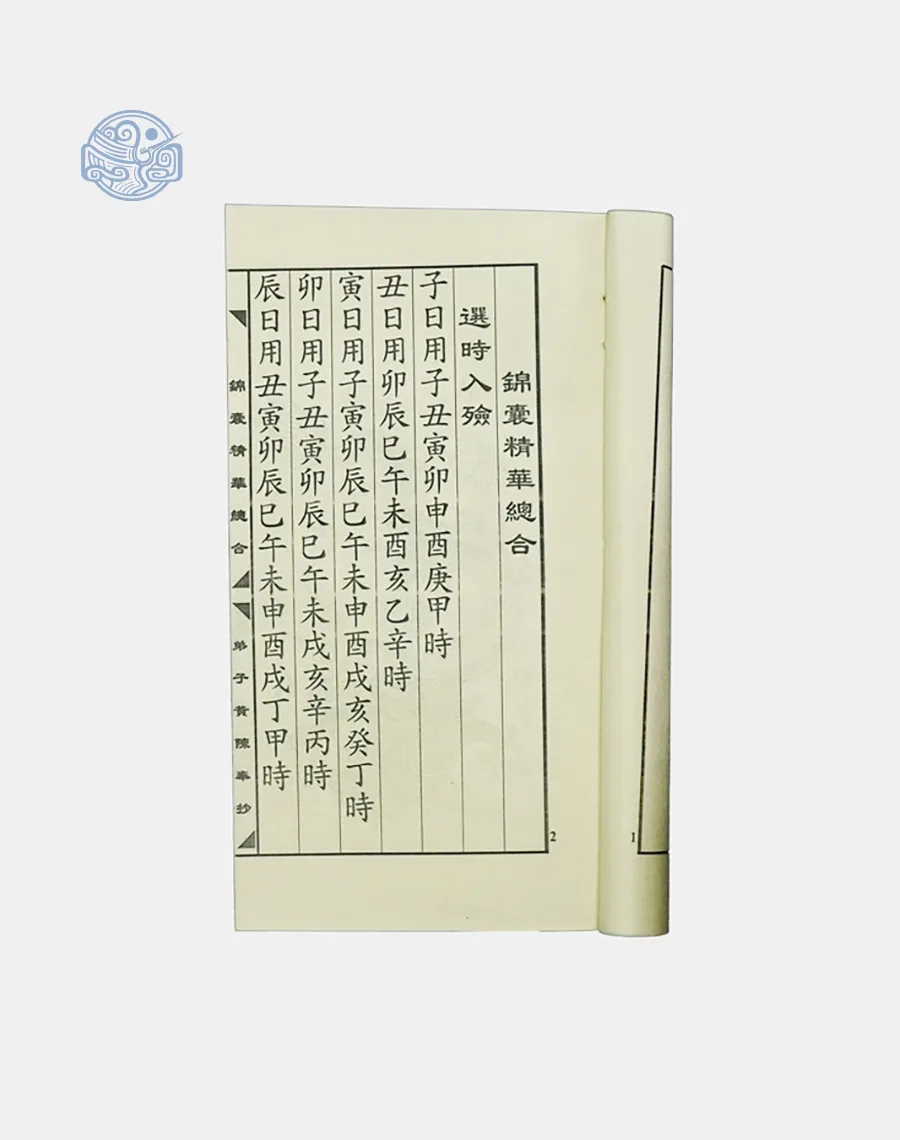 錦囊精華總合
選時入殮
子日用子丑寅卯申酉庚甲時
丑日用卯辰巳午未酉亥乙辛時
寅日用子寅卯辰巳午未申酉戌亥癸丁時
卯日用子丑寅卯辰巳午未戌亥辛丙時
辰日用丑寅卯辰巳午未申酉戌丁甲時
錦囊精華總合
弟子黃陳奉抄
2
1